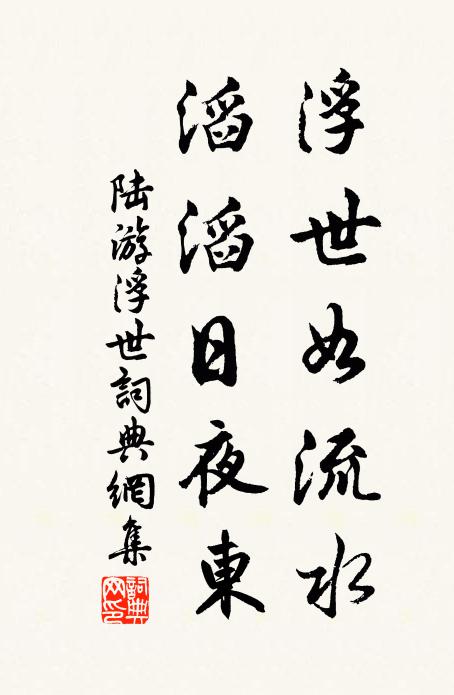 浮世如流水
滔滔日夜東
陆游浮世詞典網集
詞典网印